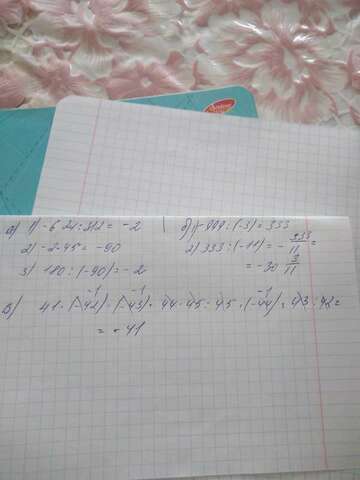 а) 1) -624:312 = -2
2) -2·45 = -90
3) 180:(-90) = -2
б) 1) -999:(-3) = 333
2) 333:(-11) = - 333/11 =
= -30 3/11
в) 41·(-42)·(-43)·44·45:45:(-44):43:42=
= -41